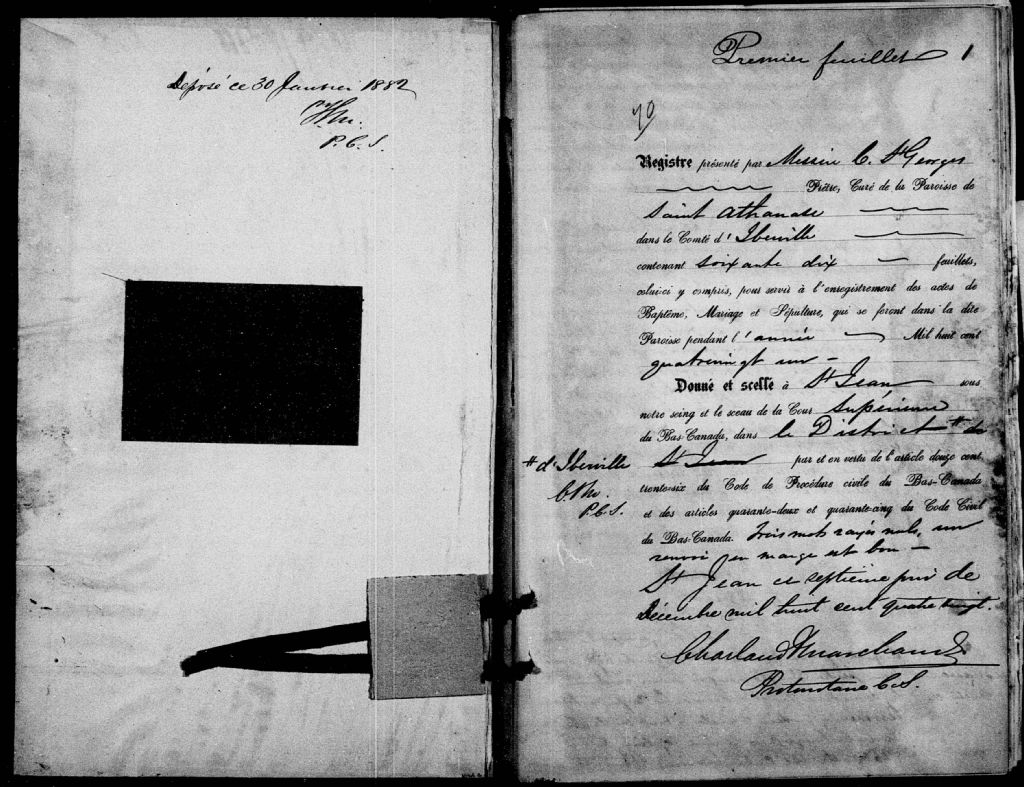 Déposé ce 30 Janvier 1882
P.C.S.
Premier feuillet 1
70
Registre présenté par Messire C. St Georges
Prêtre, Curé de la Paroisse de
Saint Athanase
dans le Comté d'Iberville
contenant soixante dix feuillets,
celui-ci y compris, pour servir à l'enregistrement des actes de
Baptême, Mariage et Sépulture, qui se feront dans la dite
Paroisse pendant l'année Mil huit cent
quatrevingt un -
Donné et scellé à St Jean sous
notre seing et le sceau de la Cour Supérieure
du Bas-Canada, dans le District # de
# d'Iberville
St Jean par et en vertu de l'article douze cent
trente-six du Code de Procédure civile du Bas-Canada
P.C.S.
et des articles quarante-deux et quarante-cinq du Code Civil
du Bas-Canada. Trois mots rayés nuls, un
renvoi en marge est bon -
St Jean ce septième jour de
Décembre mil huit cent quatre vingt.
Charland & Marchand
Protonotaire C.S.